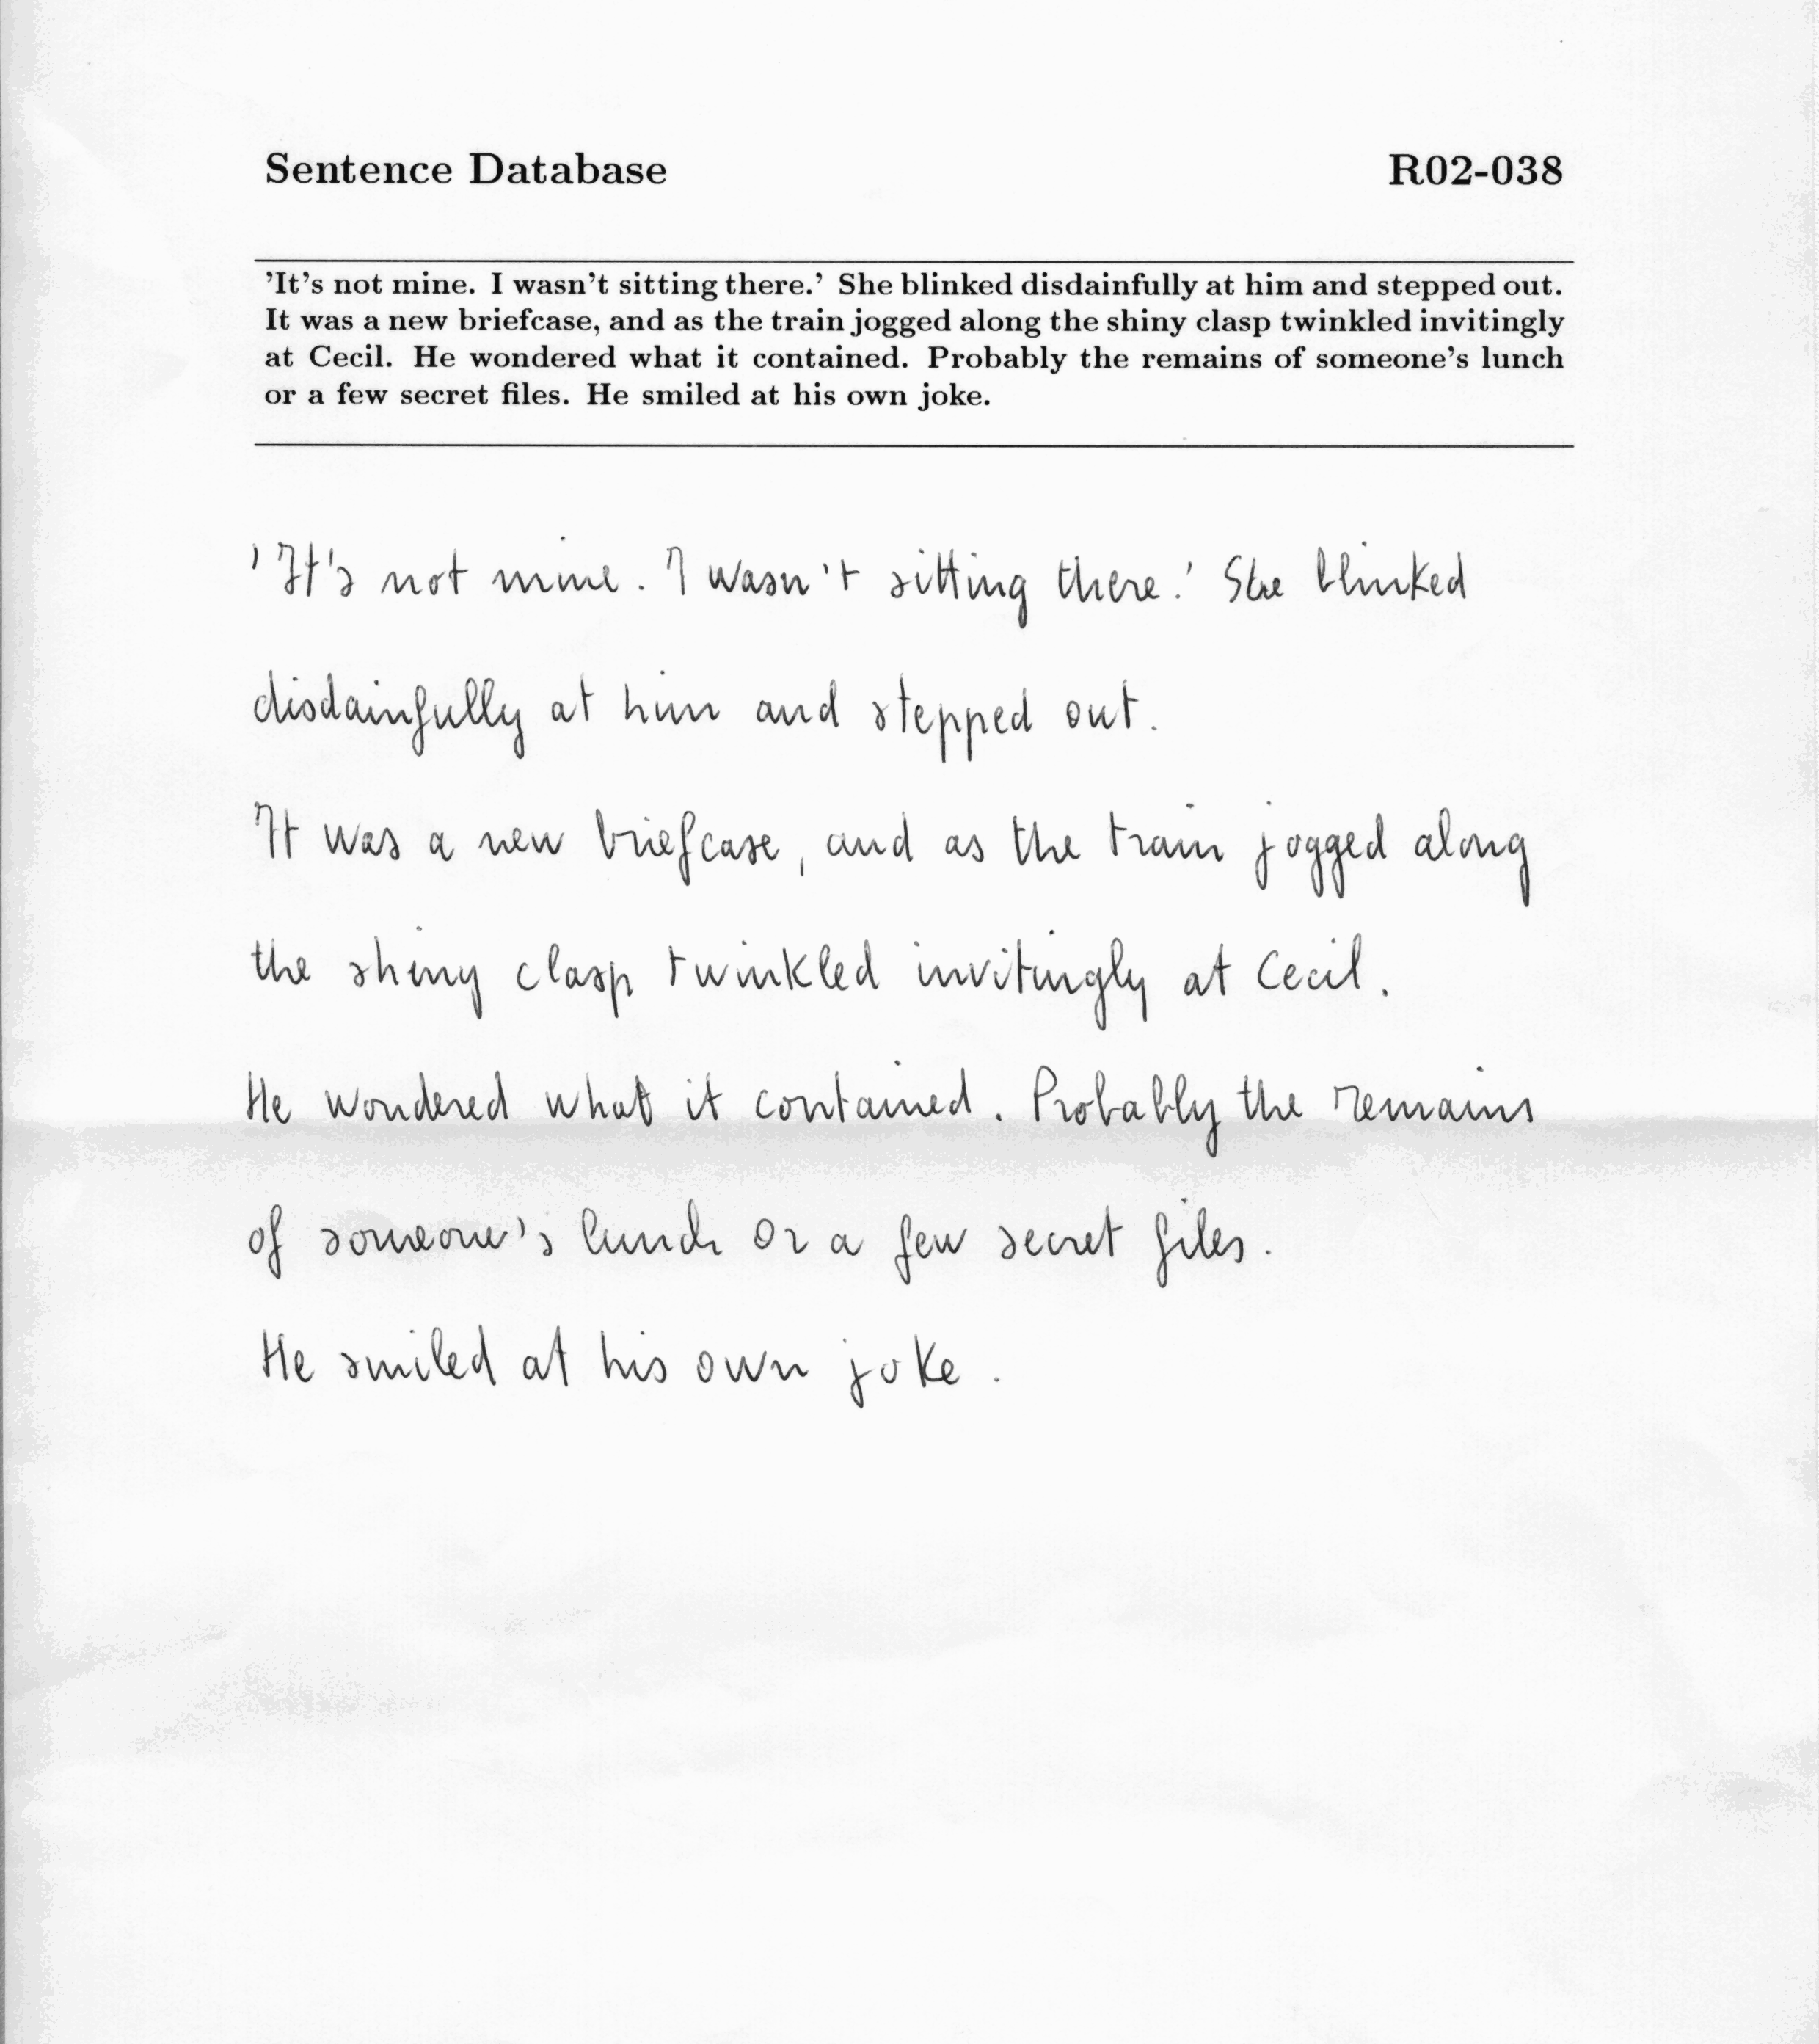 Sentence Database R02-038
'It's not mine. I wasn't sitting there.' She blinked disdainfully at him and stepped out.
It was a new briefcase, and as the train jogged along the shiny clasp twinkled invitingly
at Cecil. He wondered what it contained. Probably the remains of someone's lunch
or a few secret files. He smiled at his own joke.
'It's not mine. I wasn't sitting there.' She blinked
disdainfully at him and stepped out.
It was a new briefcase, and as the train jogged along
the shiny clasp twinkled invitingly at Cecil.
He wondered what it contained. Probably the remains
of someone's lunch or a few secret files.
He smiled at his own joke.